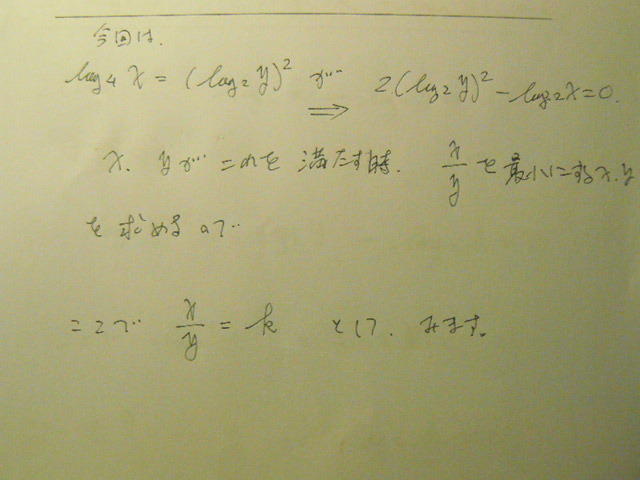 今回は.
log₄ x = (log₂ y)² が ⟹ 2(log₂ y)² - log₂ x = 0.
x. yが これを 満たす時. x/y を最小にするx.y
を求めるので
ここで x/y = k として. みます。